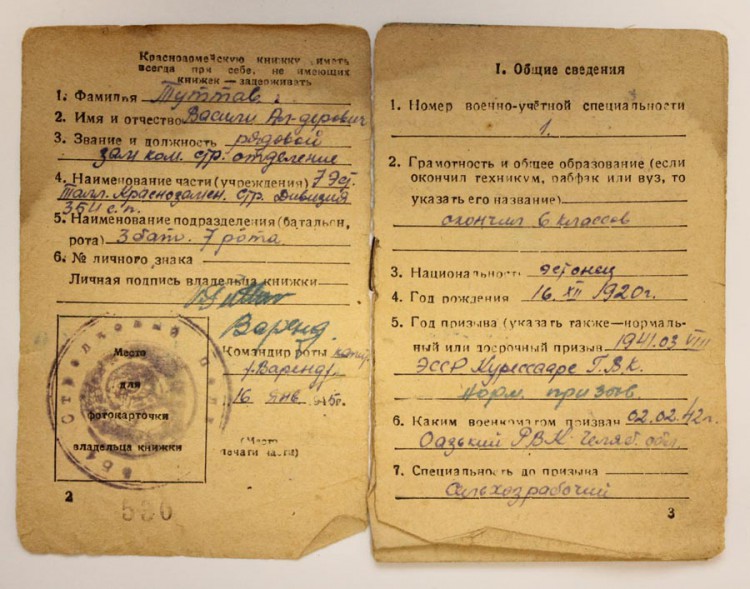 Красноармейскую книжку иметь
всегда при себе. не имеющих
книжек — задерживать
1. Фамилия Туттав
2. Имя и отчество Василий Ал-дерович
3. Звание и должность рядовой
зам ком. стр. отделение
4. Наименование части (учреждения) 7 Эст.
Талл. Краснознамен. стр. Дивизия
354 с. п.
5. Наименование подразделения (батальон,
рота) 3 бат. 7 рота
6. № личного знака
Личная подпись владельца книжки
Варенд
Командир роты
/Варенд/
16 янв.
Место
для
фотокарточки
владельца книжки
(Место
печати части)
Стрелковый Полк
2
530
I. Общие сведения
1. Номер военно-учётной специальности
1.
2. Грамотность и общее образование (если
окончил техникум, рабфак или вуз, то
указать его название)
окончил 6 классов
3. Национальность эстонец
4. Год рождения 16. XII 1920г.
5. Год призыва (указать также—нормаль-
ный или досрочный призыв 1941.03 VIII
ЭССР Курессааре Г.В.К.
норм. призыв
6. Каким военкоматом призван 02.02.42г.
РВК Челяб. обл.
7. Специальность до призыва
сельхозрабочий
3